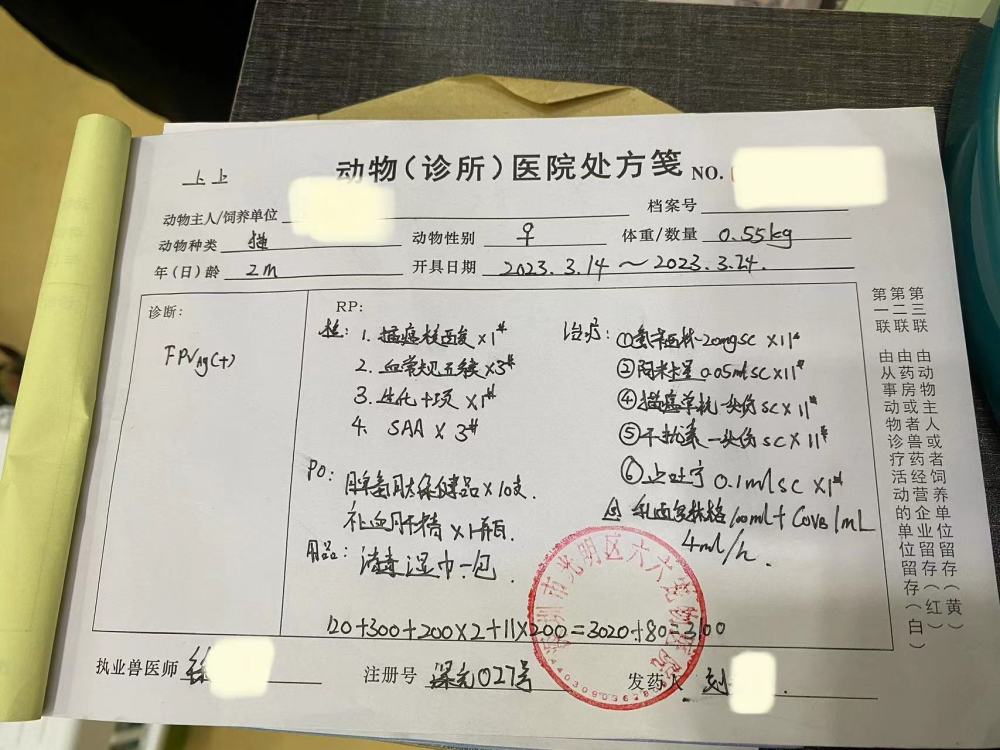 上上
动物（诊所）医院处方笺 NO.
动物主人/饲养单位
档案号
动物种类 猫 动物性别 ♀ 体重/数量 0.55kg
年（日）龄 2m 开具日期 2023.3.14～2023.3.24.
诊断：
FPV Ag(+)
RP:
1. 猫瘟核酸×1
2. 血常规五线×3
3. 生化十项×1
4. SAA×3
PO:
×10支.
补血肝精×1瓶.
用品：
消毒湿巾一包.
治疗：
-20mg sc ×11
0.05ml sc×11
④猫瘟单抗一头份 sc×11
⑤干扰素一头份 sc×11
⑥止吐宁 0.1ml sc ×1
100ml+CoVB 1mL
4ml/h.
120+300+200×2+11×200=3020+80=3100
执业兽医师 徐
注册号 027号
发药人 刘
第一联 由从事动物诊疗活动的单位留存（白）
第二联 由药房或兽药经营企业留存（红）
第三联 由动物主人或者饲养单位留存（黄）